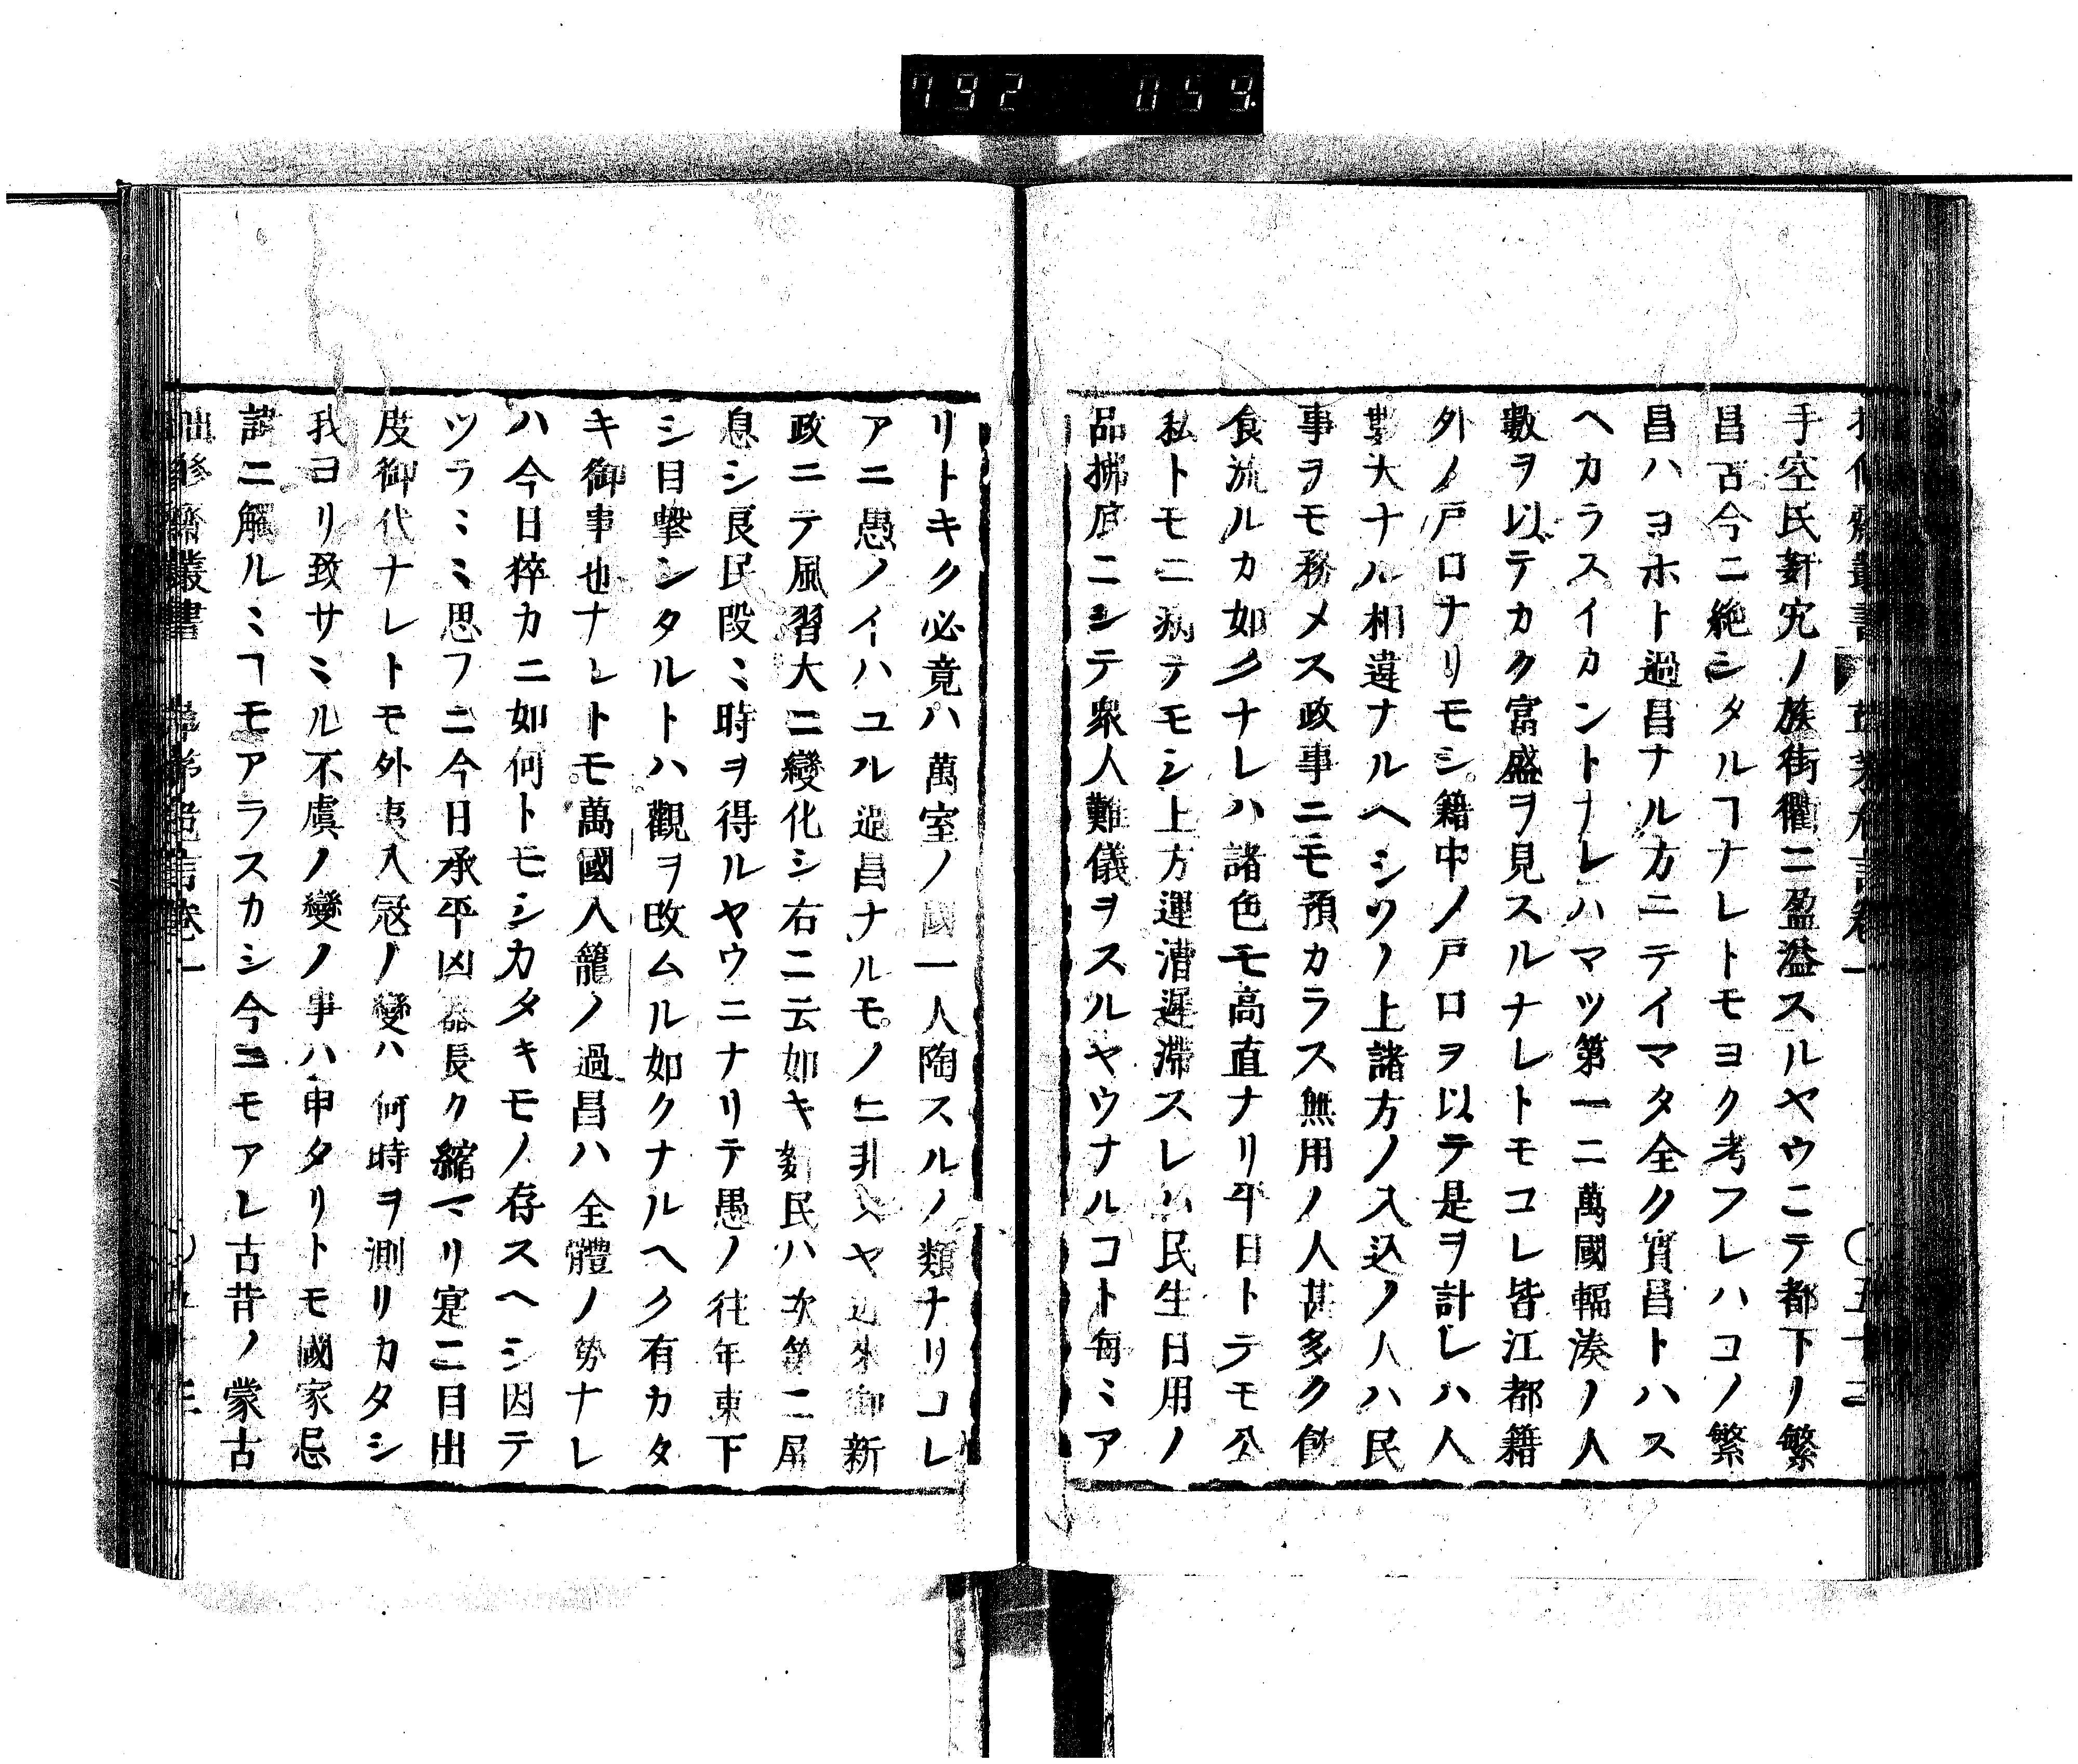 792 059
手空民姧宄ノ族街衢ニ盈溢スルヤウニテ都下ノ繁
昌古今ニ絶シタルヿナレトモヨク考フレハコノ繁
昌ハヨホト過昌ナル方ニテイマタ全ク實昌トハス
ヘカラスイカントナレハマツ第一ニ萬國輻湊ノ人
數ヲ以テカク富盛ヲ見スルナレトモコレ皆江都籍
外ノ戸口ナリモシ籍中ノ戸口ヲ以テ是ヲ計レハ人
數大ナル相違ナルヘシソノ上諸方ノ入込ノ人ハ民
事ヲモ務メス政事ニモ預カラス無用ノ人甚多ク飲
食流ルカ如クナレハ諸色モ高直ナリ平日トテモ公
私トモニ病テモシ上方運漕遲滯スレハ民生日用ノ
品拂底ニシテ衆人難儀ヲスルヤウナルコト毎ミア
リトキク必竟ハ萬室ノ國一人陶スルノ類ナリコレ
アニ愚ノイハユル過昌ナルモノニ非スヤ近來御新
政ニテ風習大ニ變化シ右ニ云如キ姧民ハ次第ニ屏
息シ良民段ミ時ヲ得ルヤウニナリテ愚ノ往年東下
シ目撃シタルトハ觀ヲ改ムル如クナルヘク有カタ
キ御事也ナレトモ萬國入籠ノ過昌ハ全體ノ勢ナレ
ハ今日猝カニ如何トモシカタキモノノ存スヘシ因テ
ツラミミ思フニ今日承平凶器長ク縮マリ寔ニ目出
度御代ナレトモ外夷入冦ノ變ハ何時ヲ測リカタシ
我ヨリ致サミル不虞ノ變ノ事ハ申タリトモ國家忌
諱ニ觸ルミヿモアラスカシ今ニモアレ古昔ノ蒙古
叢書